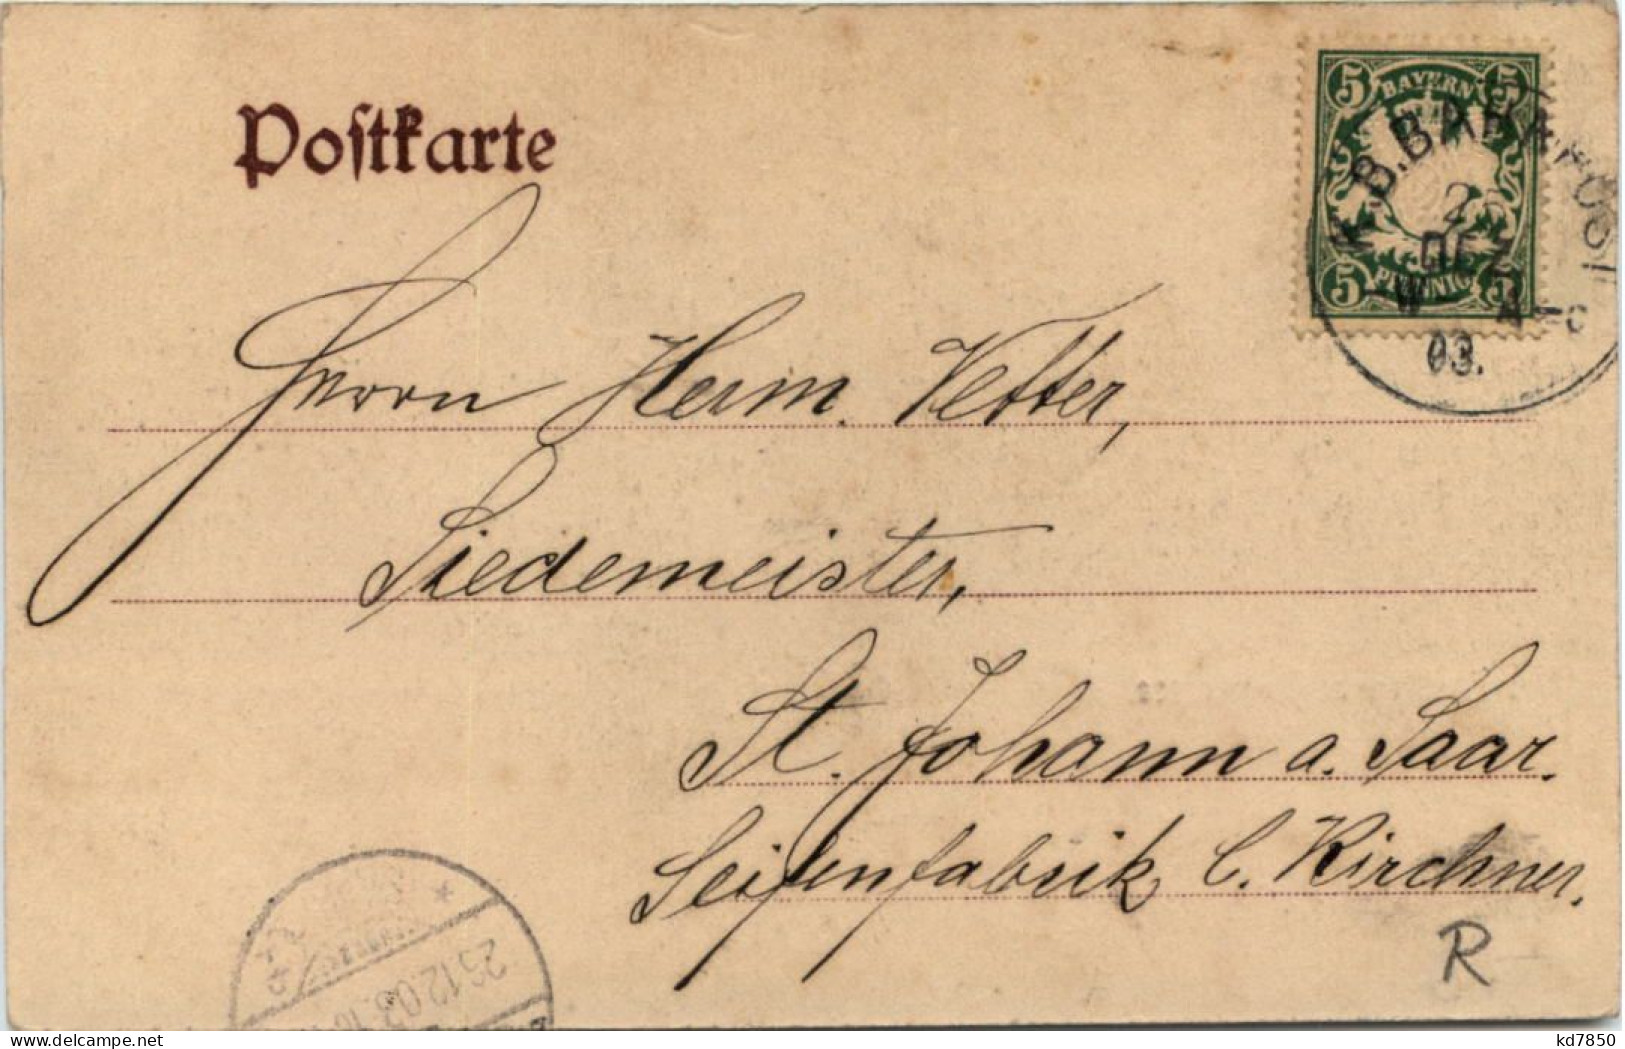 Postkarte
5 BAYERN 5
5 PFENNIG 5
K.B.BAHNPOST
DEZ
03.
Herrn Herm. Vetter,
Siedemeister,
St. Johann a. Saar.
Seifenfabrik C. Kirchner.
R
delcampe.net
kd7850